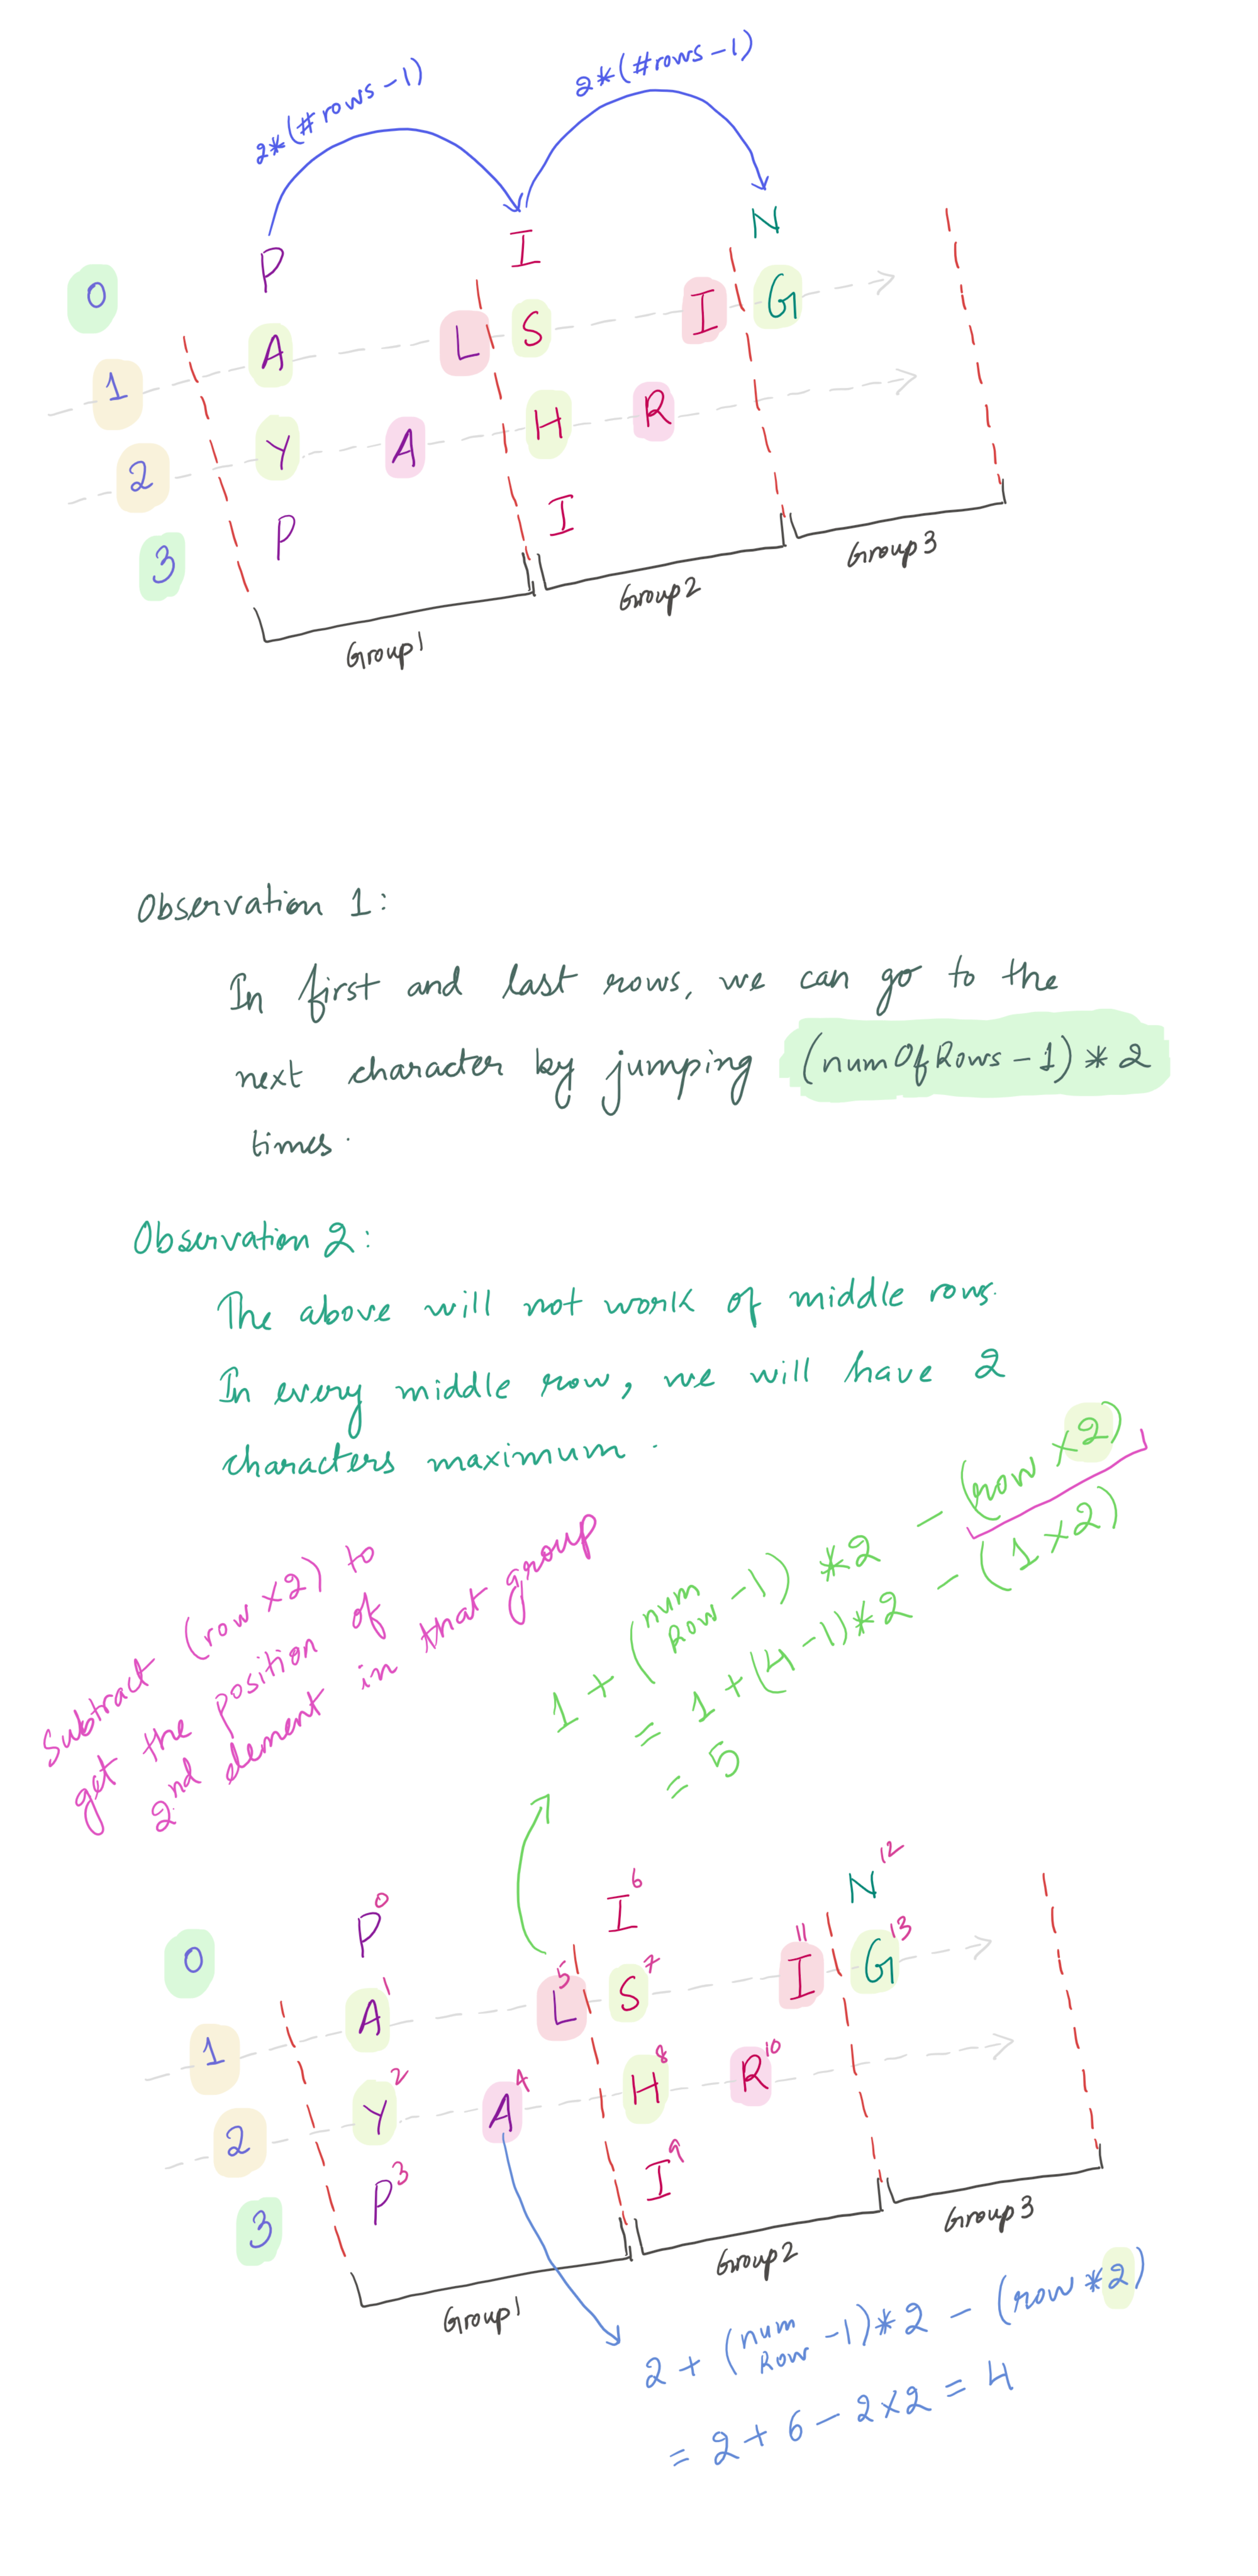 2*(#rows-1) 2*(#rows-1)
P I N
0
A L S I G
1
Y A H R
2
P I
3
Group1 Group2 Group3
Observation 1:
In first and last rows, we can go to the
next character by jumping (numOfRows-1)*2
times.
Observation 2:
The above will not work of middle rows.
In every middle row, we will have 2
characters maximum.
Subtract (row x2) to
get the position of
2nd element in that group
1 + (num Row -1) *2 - (row x2)
= 1 + (4-1)*2 - (1x2)
= 5
P0 I6 N12
0
A1 L5 S7 I11 G13
1
Y2 A4 H8 R10
2
P3 I9
3
Group1 Group2 Group3
2 + (num Row -1)*2 - (row *2)
= 2 + 6 - 2x2 = 4